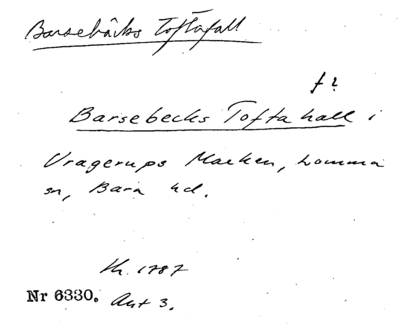 Barsebäcks Toftafall
f?
Barsebecks Tofta hall i
Vragerups Marken, Lomma
sn, Bara hd.
1787
Nr 6330. Akt 3.